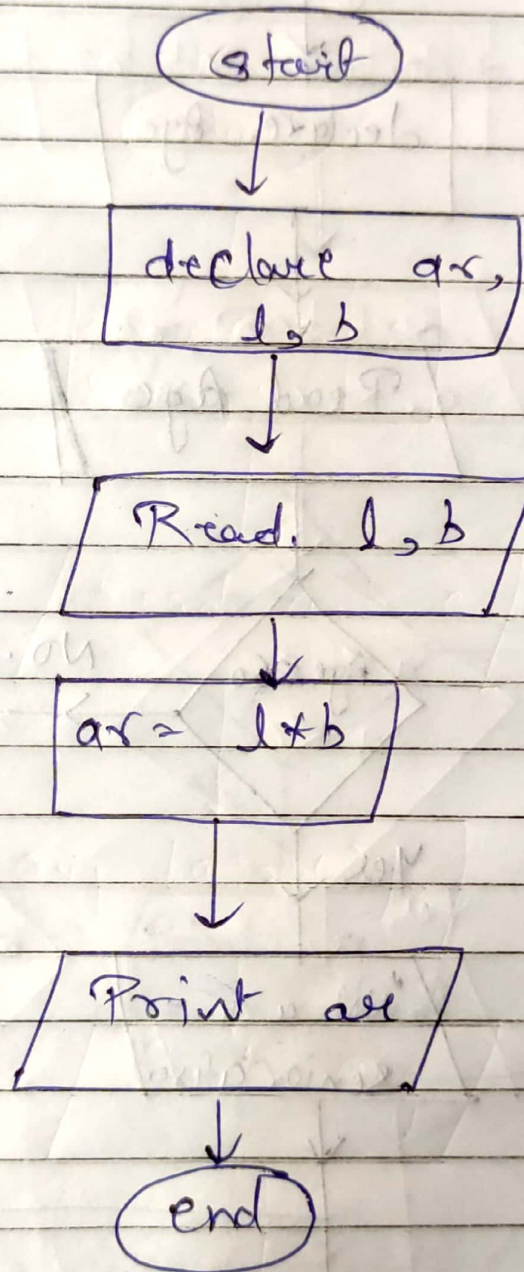 start
declare ar,
l, b
Read. l, b
ar = l*b
Print ar
end